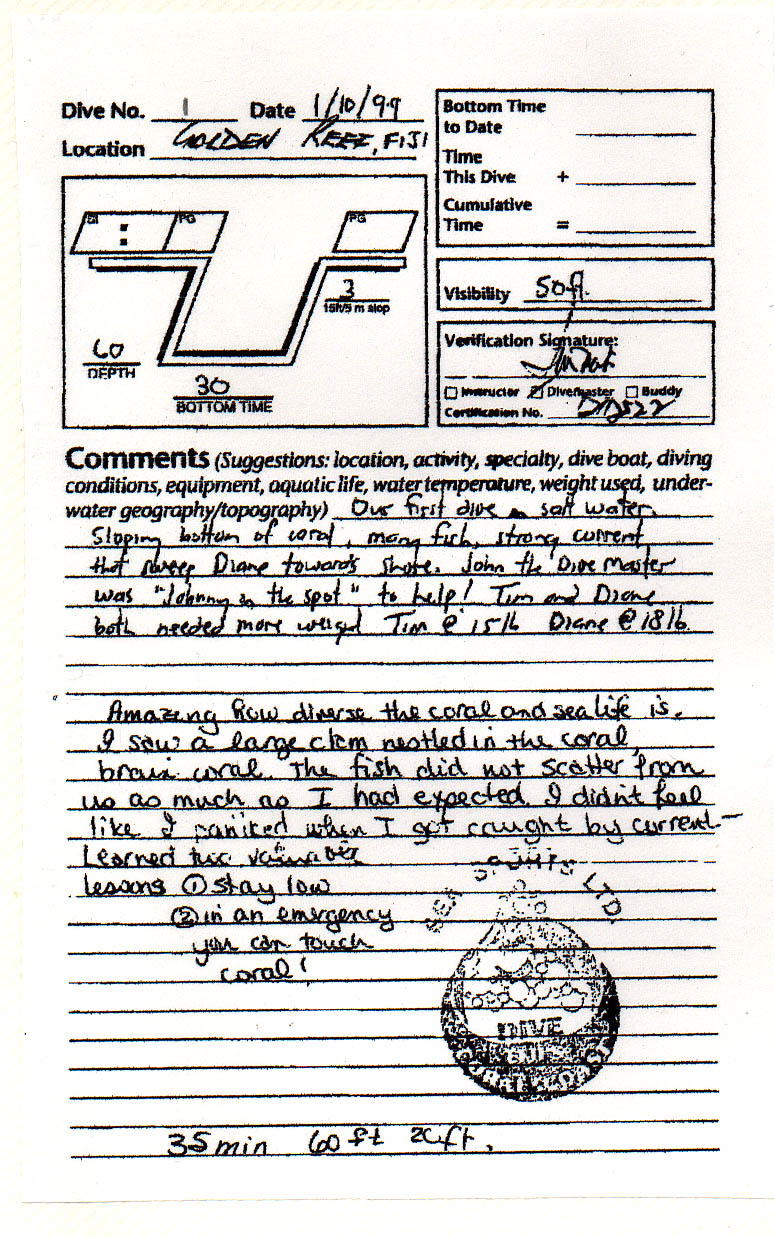 Dive No. 1 Date 1/10/99
Location GOLDEN REEF, FIJI
Bottom Time
to Date
Time
This Dive +
Cumulative
Time =
SI : PG
PG
3
15ft/5 m stop
60
DEPTH
30
BOTTOM TIME
Visibility 50ft.
Verification Signature:
Instructor Divemaster Buddy
Certification No.
Comments (Suggestions: location, activity, specialty, dive boat, diving
conditions, equipment, aquatic life, water temperature, weight used, under-
water geography/topography) Our first dive in salt water.
Sloping bottom of coral, many fish, strong current
that sweep Diane towards shore. John the Dive Master
was "Johnny on the spot" to help! Tim and Diane
both needed more weight Tim @ 15 lb Diane @ 18 lb.
Amazing how diverse the coral and sea life is.
I saw a large clam nestled in the coral,
brain coral. The fish did not scatter from
us as much as I had expected. I didn't feel
like I paniked when I got caught by current-
Learned two valuable
lessons ① stay low
② in an emergency
you can touch
coral!
SEA SPORTS LTD.
DIVE
35 min 60 ft 20 ft.